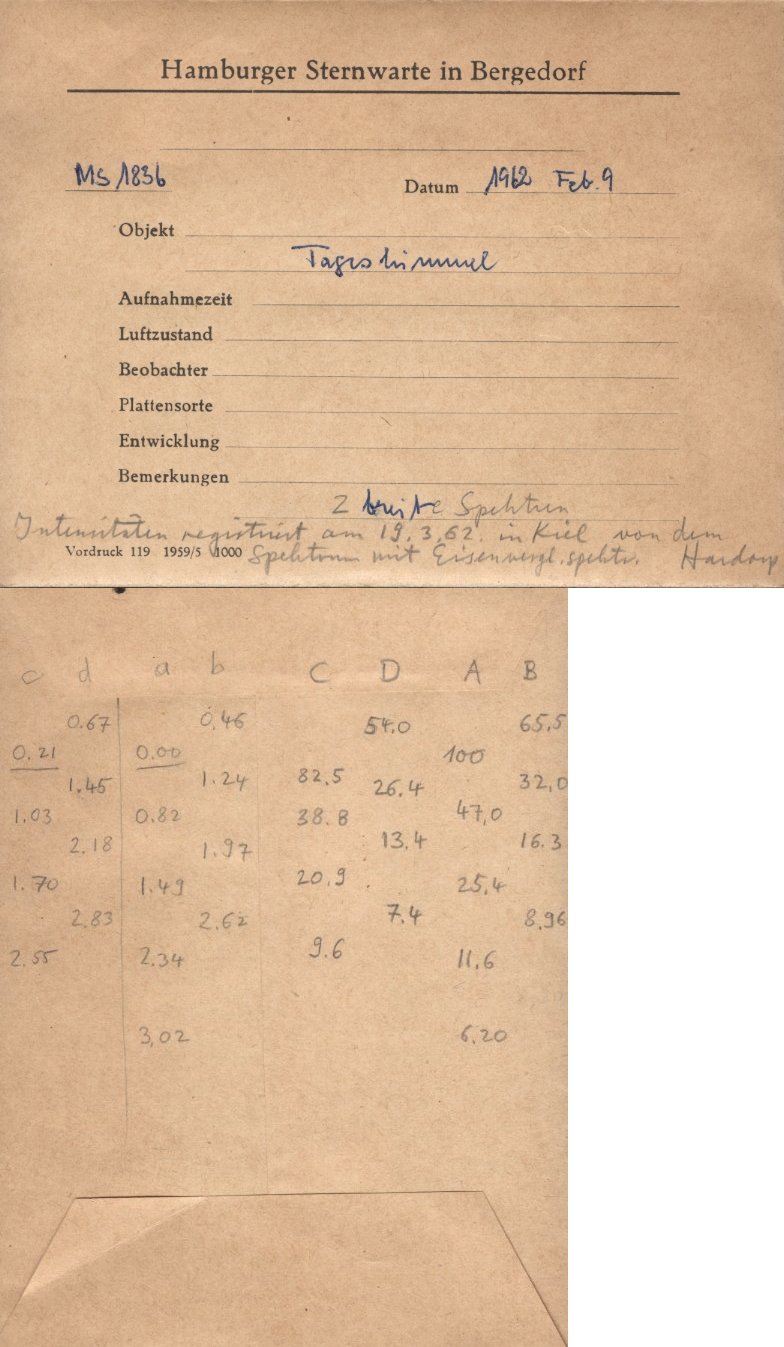 Hamburger Sternwarte in Bergedorf
MS 1836 Datum 1962 Feb. 9
Objekt
Tageshimmel
Aufnahmezeit
Luftzustand
Beobachter
Plattensorte
Entwicklung
Bemerkungen
2 breite Spektren
Intensitäten registriert am 19.3.62. in Kiel von dem
Vordruck 119 1959/5 1000 Spektrum mit Eisenvergl.spektr. Hardorp
c d a b C D A B
0.67 0,46 54.0 65,5
0,21 0.00 100
1.45 1.24 82.5 26.4 32,0
1.03 0.82 38.8 47,0
2.18 1.97 13,4 16.3
1.70 1.49 20.9 25,4
2,83 2.62 7.4 8,96
2.55 2.34 9.6 11,6
3,02 6,20